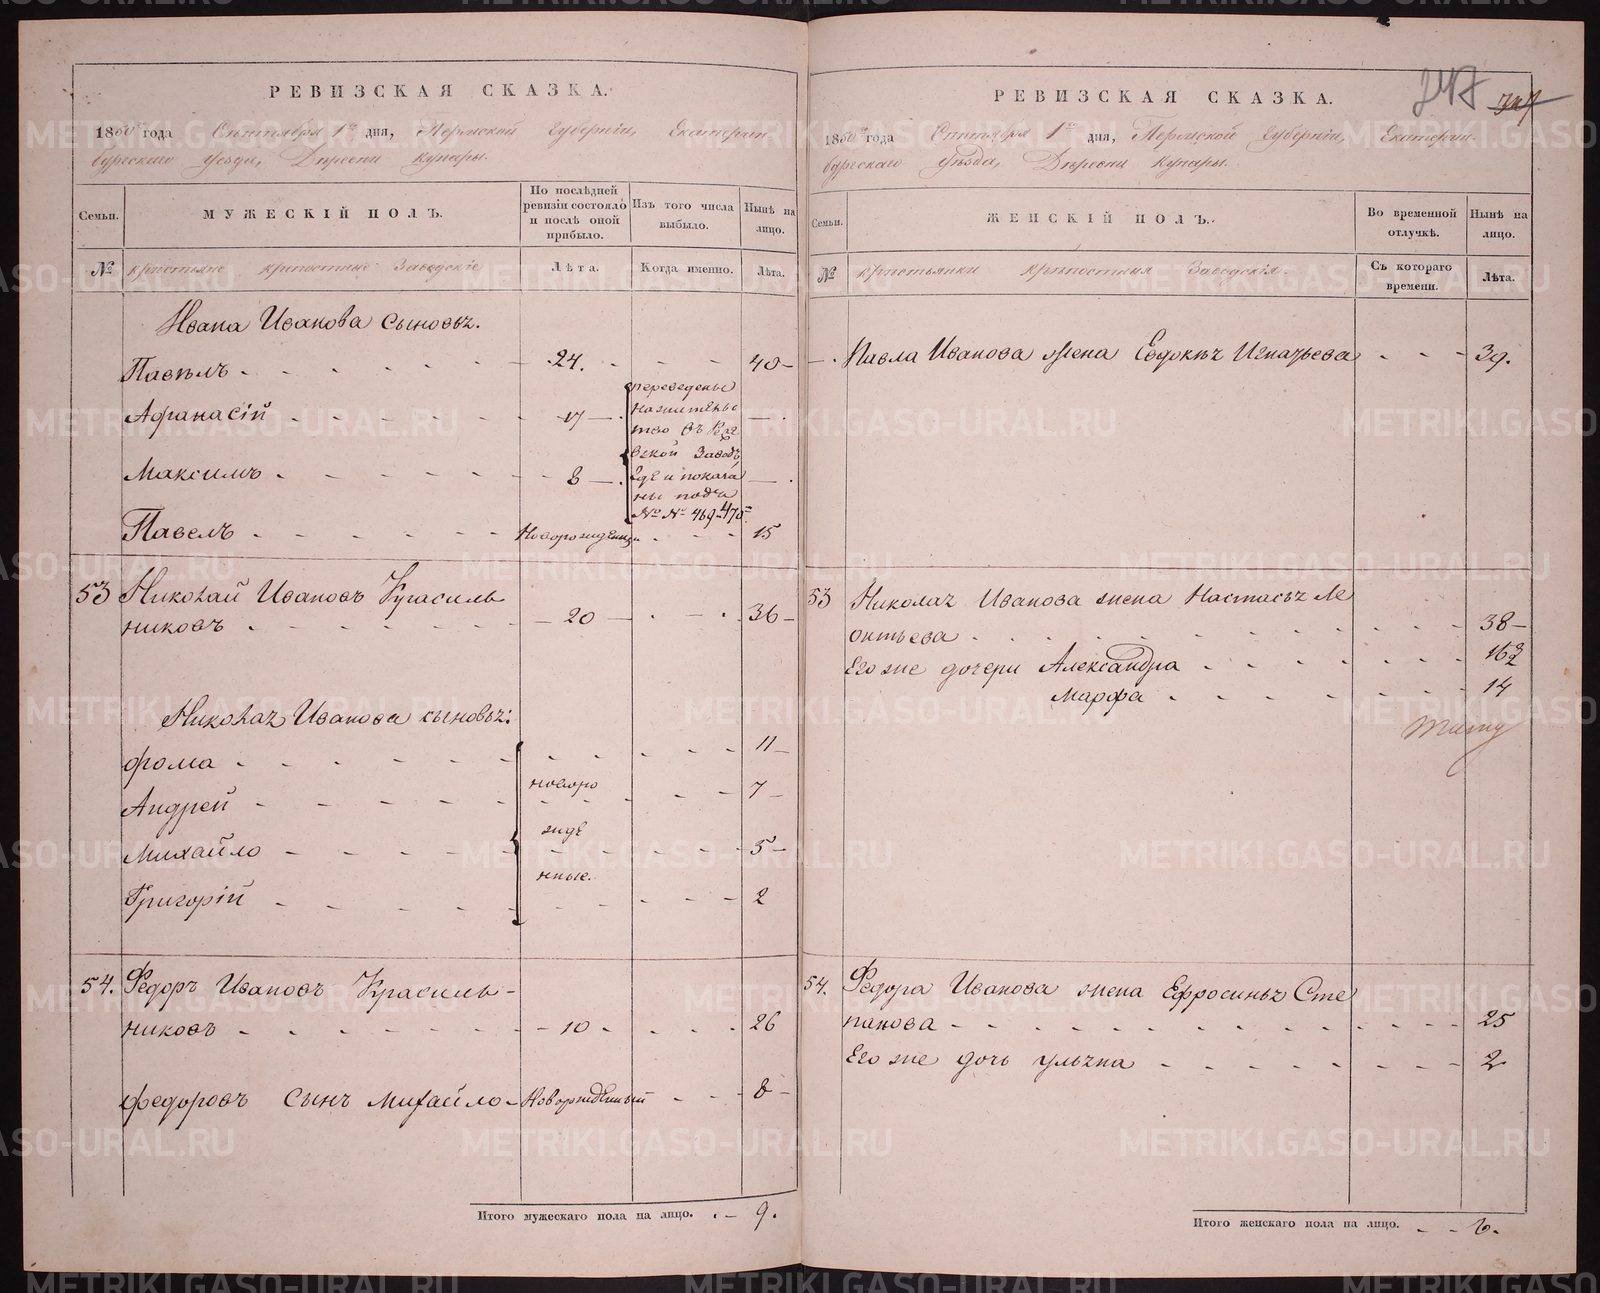 РЕВИЗСКАЯ СКАЗКА.
1850 года Сентября 1го дня, Пермской Губерніи, Екатерин
бургского Уезда, Деревни Купары.
Семьи.
МУЖЕСКІЙ ПОЛЪ.
По послѣдней
ревизіи состояло
и послѣ оной
прибыло.
Изъ того числа
выбыло.
Нынѣ на
лицо.
№
крестьяне крепостные Заводскіе
Лѣта.
Когда именно.
Лѣта.
Ивана Иванова сыновья.
Павелъ 24. 40
Афанасій 17
Максимъ 8
переведены
на жительс
тво въ
вской Заводъ
где и показа
ны подъ
№ № 469-470
Павелъ Новорожденный 15
53 Николай Ивановъ Красиль
никовъ 20 36
Николая Иванова сыновья:
Фома 11
Андрей 7
Михайло 5
Григорій 2
новоро
жде
нные.
54. Федоръ Ивановъ Красиль-
никовъ 10 26
Федоровъ сынъ Михайло Новорожденный 8
Итого мужескаго пола на лицо. 9.
247
РЕВИЗСКАЯ СКАЗКА.
1850 года Сентября 1го дня, Пермской Губерніи, Екатерин
бургскаго Уѣзда, Деревни Купары.
Семьи.
ЖЕНСКІЙ ПОЛЪ.
Во временной
отлучкѣ.
Нынѣ на
лицо.
№
крестьянки крѣпостныя Заводскія.
Съ котораго
времени.
Лѣта.
Павла Иванова жена Евдокья Игнатьева 39.
53 Николая Иванова жена Настасья Ле
онтьева 38
Его же дочери Александра 16
Марфа 14
54. Федора Иванова жена Ефросинья Сте
панова 25
Его же дочь Ульяна 2
Итого женскаго пола на лицо. 6.
METRIKI.GASO-URAL.RU